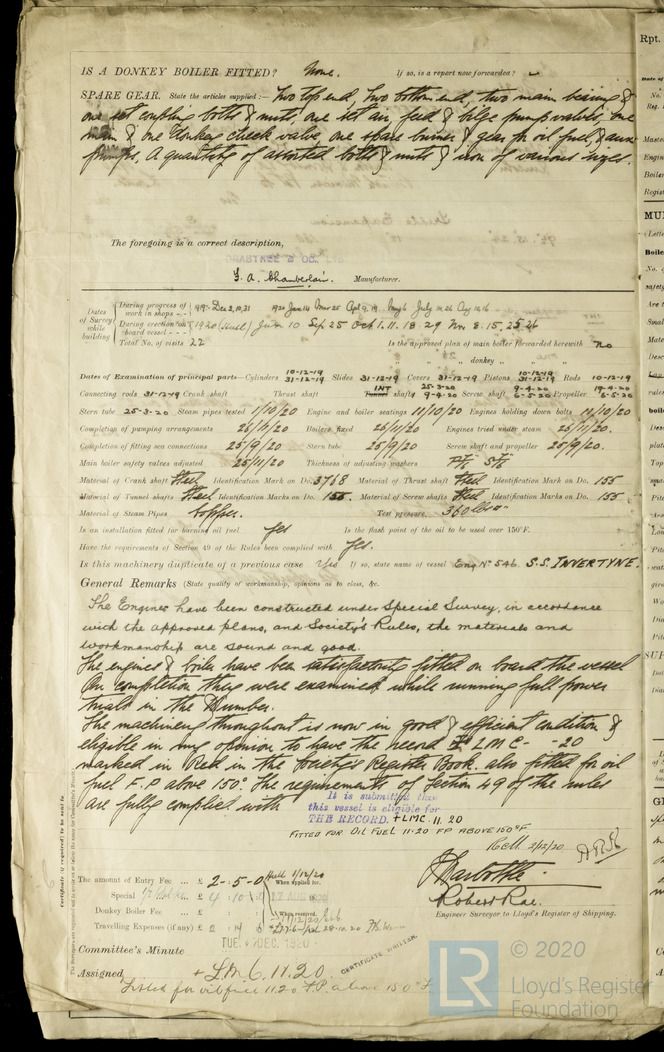 IS A DONKEY BOILER FITTED? None. If so, is a report now forwarded?
SPARE GEAR. State the articles supplied:— Two top end, two bottom end, two main bearing &
one set coupling bolts & nuts, one set air, feed & bilge pump valves, one
main & one donkey check valve one spare burner & gear for oil fuel, & aux
pumps. A quantity of assorted bolts & nuts & iron of various sizes.
The foregoing is a correct description,
CRABTREE & CO.
F. A. Chamberlain. Manufacturer.
Dates of Survey while building
During progress of work in shops - - 1919: Dec 3, 10, 31 1920 Jan 14 Mar 25 Apl 9, 19 May 6 July 14, 26 Aug 10, 16
During erection on board vessel - - 1920 (Hull) Jun 10 Sep 25 Oct 1. 11. 18. 29 Nov 8. 15, 25 26
Total No. of visits 22 Is the approved plan of main boiler forwarded herewith no
" " " donkey " " "
Dates of Examination of principal parts—Cylinders 10-12-19 31-12-19 Slides 31-12-19 Covers 31-12-19 Pistons 10-12-19 31-12-19 Rods 10-12-19
Connecting rods 31-12-19 Crank shaft Thrust shaft INT Tunnel shafts 25-3-20 9-4-20 Screw shaft 9-4-20 6-5-20 Propeller 19-4-20 6-5-20
Stern tube 25-3-20 Steam pipes tested 1/10/20 Engine and boiler seatings 11/10/20 Engines holding down bolts 11/10/20
Completion of pumping arrangements 26/11/20 Boilers fixed 26/11/20 Engines tried under steam 26/11/20.
Completion of fitting sea connections 25/9/20 Stern tube 25/9/20 Screw shaft and propeller 25/9/20.
Main boiler safety valves adjusted 25/11/20 Thickness of adjusting washers
Material of Crank shaft Steel Identification Mark on Do. 3768 Material of Thrust shaft Steel Identification Mark on Do. 155
Material of Tunnel shafts Steel Identification Marks on Do. 155. Material of Screw shafts Steel Identification Marks on Do. 155
Material of Steam Pipes Copper. Test pressure 360 lbs
Is an installation fitted for burning oil fuel Yes Is the flash point of the oil to be used over 150°F.
Have the requirements of Section 49 of the Rules been complied with Yes.
Is this machinery duplicate of a previous case Yes If so, state name of vessel Eng. No 546 S.S. INVERTYNE.
General Remarks (State quality of workmanship, opinions as to class, &c.
The Engines have been constructed under Special Survey, in accordance
with the approved plans, and Society's Rules, the materials and
workmanship are sound and good.
The engines & boiler have been satisfactorily fitted on board the vessel
On completion they were examined while running full power
trials in the Humber.
The machinery throughout is now in good & efficient condition &
eligible in my opinion to have the record L M C - -20
marked in Red in the Society's Register Book. also fitted for oil
fuel F.P above 150°. The requirements of Section 49 of the rules
are fully complied with
It is submitted that
this vessel is eligible for
THE RECORD. + LMC. 11. 20
FITTED FOR OIL FUEL 11.20 FP ABOVE 150°F.
2/12/20
The amount of Entry Fee ... £ 2 - 5 - 0 When applied for, Hull 1/12/20
Special ... £ 4 . 10 17 AUG 1920
Donkey Boiler Fee ... £ When received,
Travelling Expenses (if any) £
Robert Rae.
Engineer Surveyor to Lloyd's Register of Shipping.
Committee's Minute TUE. 7 DEC. 1920
CERTIFICATE WRITTEN.
Assigned + L.M.C. 11.20
Fitted for oil fuel 11.20 F.P. above 150°F.
Certificate (if required) to be sent to
Rpt.
LR
© 2020
Lloyd's Register
Foundation